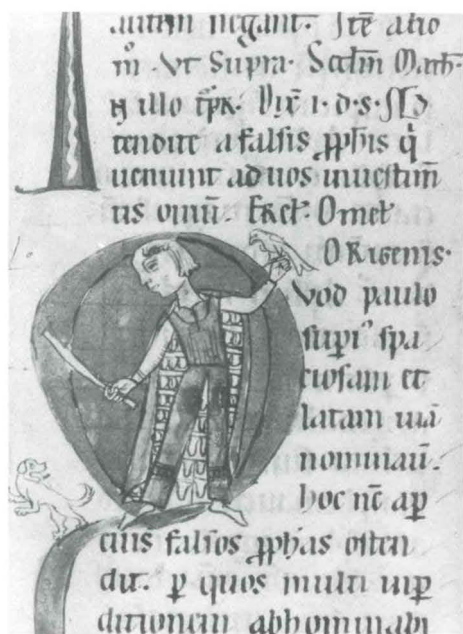 autem negant. Itē alio
m̄. Vt Supra. Scdm̄ Math.
N illo t̄pr̄. Dix̄ i. d. s. 
tendite a falsis p̱phis q̄
ueniunt ad uos inuestim̄
tis ouiū. Et rel. Omel
ORigenis.
vod paulo
supi᷒ spa
ciosam et
latam uiā
nominauī.
hoc nc̄ ap
cius falsos p̱phas osten
dit. p̱ quos multi
ditionem abhominabi